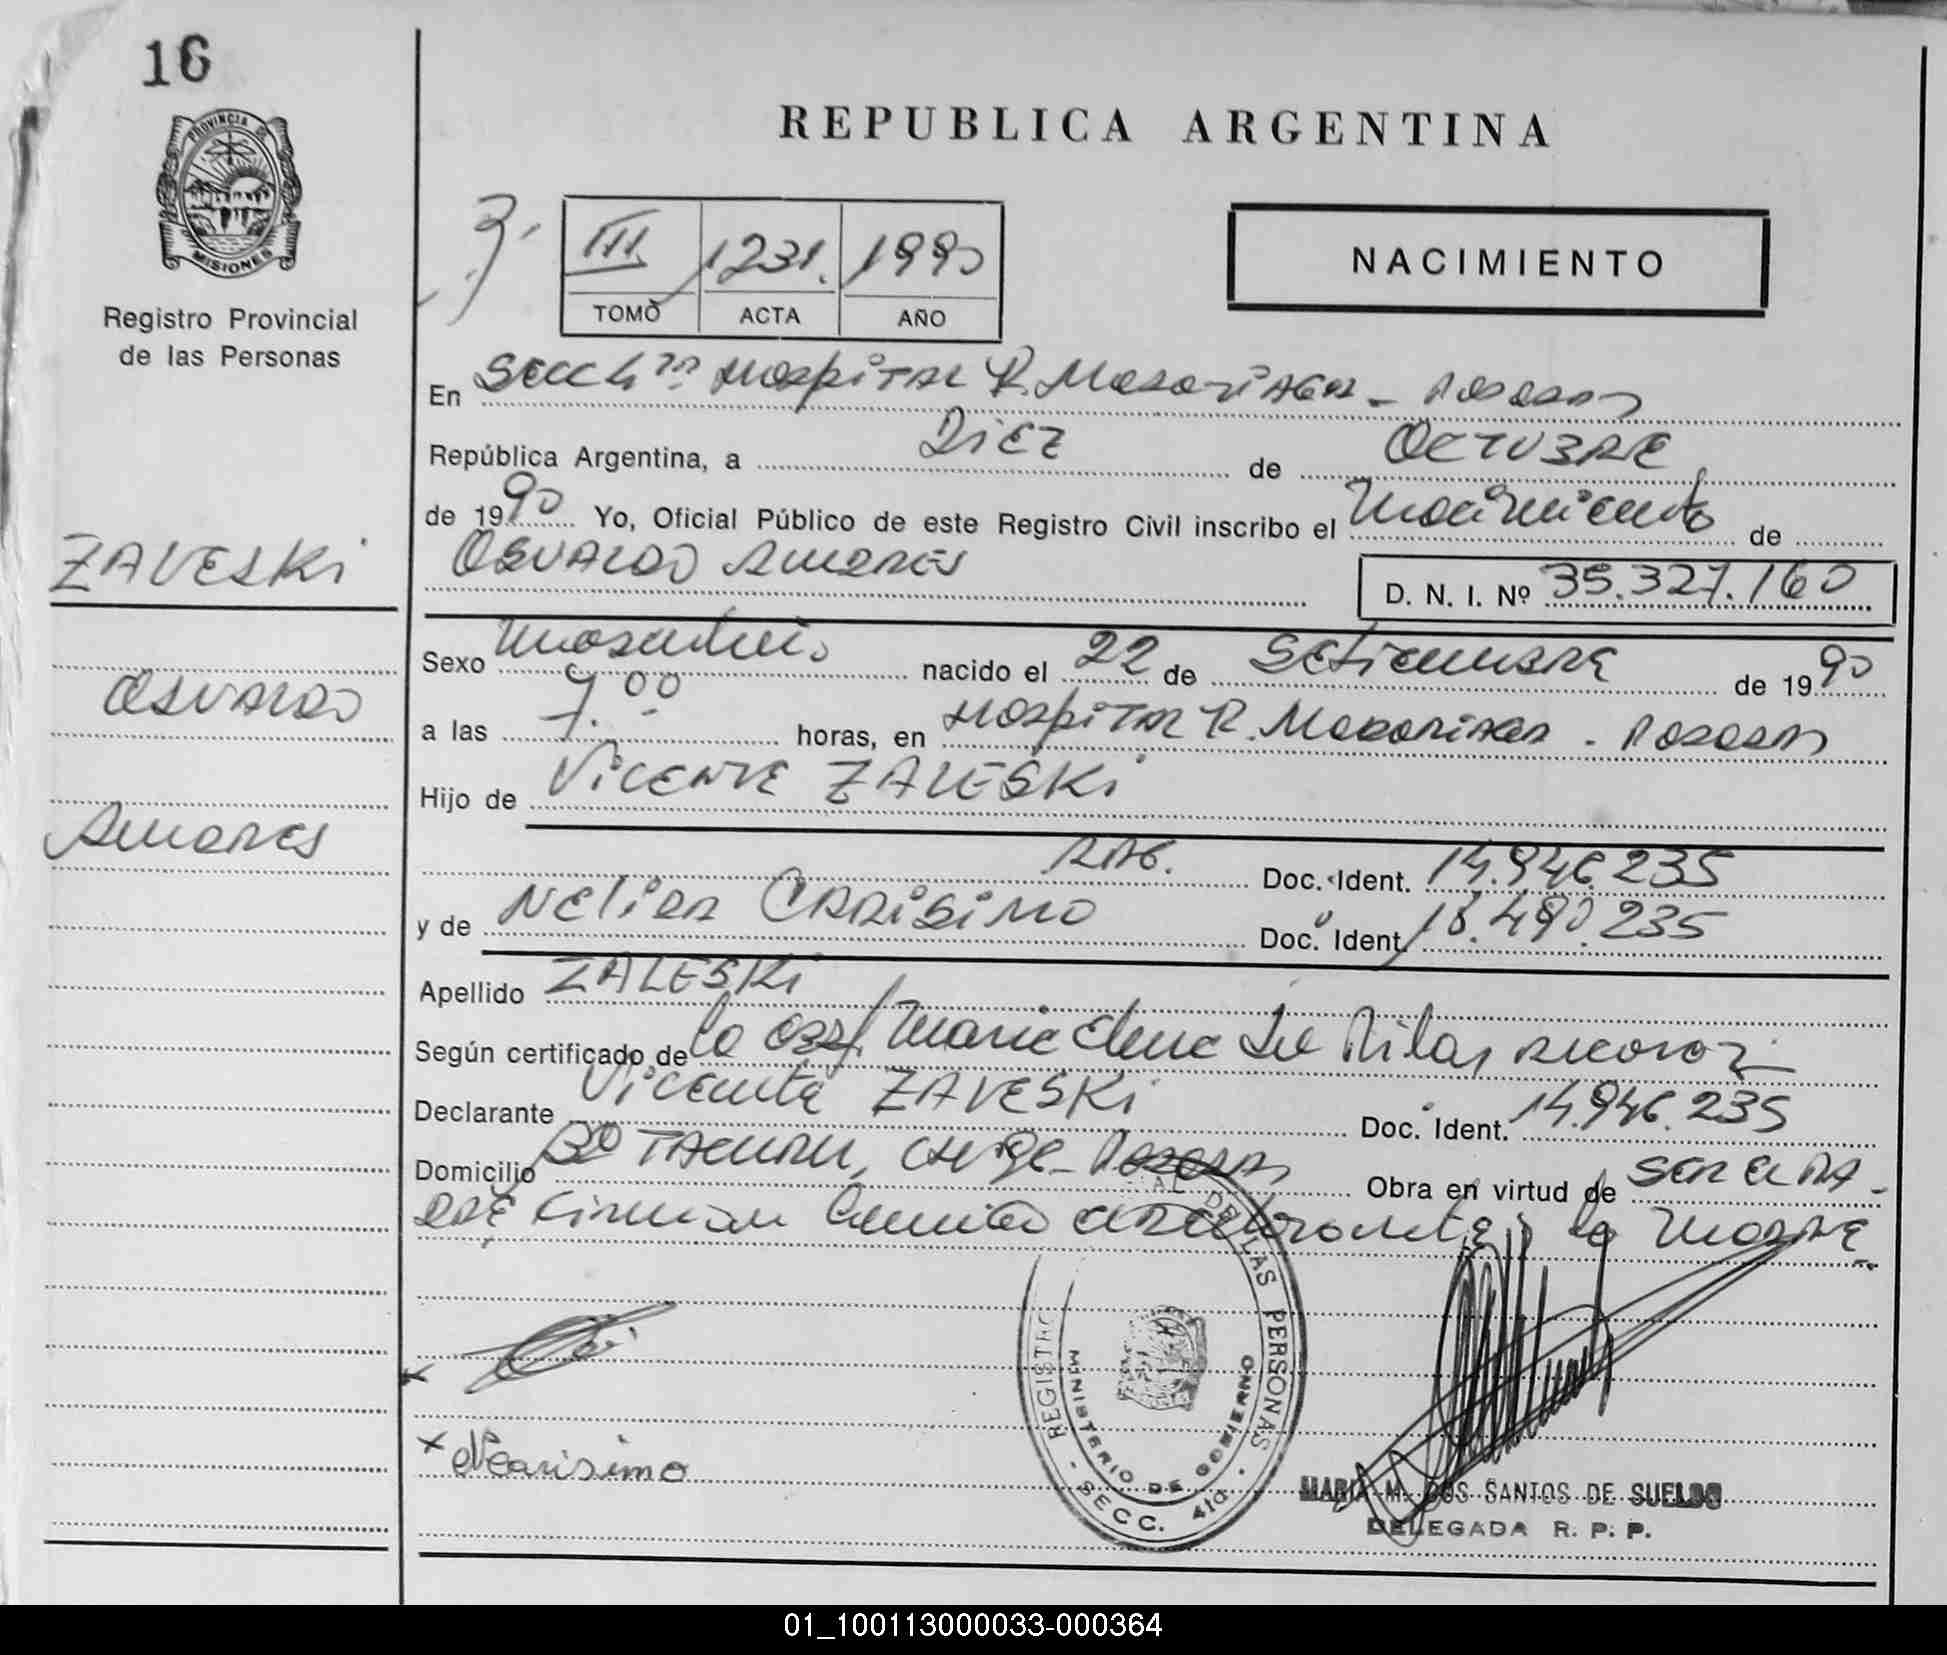 16
PROVINCIA DE
MISIONES
Registro Provincial
de las Personas
ZALESKI
OSVALDO
ANDRES
REPUBLICA ARGENTINA
3.
III 1231. 1990
TOMO ACTA AÑO
NACIMIENTO
En Secc 4ta Hospital R. Madariaga - Posadas
República Argentina, a DIEZ de OCTUBRE
de 1990 Yo, Oficial Público de este Registro Civil inscribo el Nacimiento de
OSVALDO ANDRES
D. N. I. Nº 35.327.160
Sexo Masculino nacido el 22 de SETIEMBRE de 1990
a las 7.00 horas, en Hospital R. Madariaga - Posadas
Hijo de VICENTE ZALESKI
Doc. Ident. 14.946.235
y de NELIDA CARISIMO Doc. Ident. 18.490.235
Apellido ZALESKI
Según certificado de la Obst/ Maria Elena del Pilar
Declarante Vicente ZALESKI Doc. Ident. 14.946.235
Domicilio Bº TACURU, Posadas Obra en virtud de SER EL PA-
DRE Firman la Madre
x
x NCarisimo
REGISTRO AL DE LAS PERSONAS
MINISTERIO DE GOBIERNO
- SECC. 4ta -
MARIA M. DOS SANTOS DE SUELDO
DELEGADA R. P. P.
01_100113000033-000364